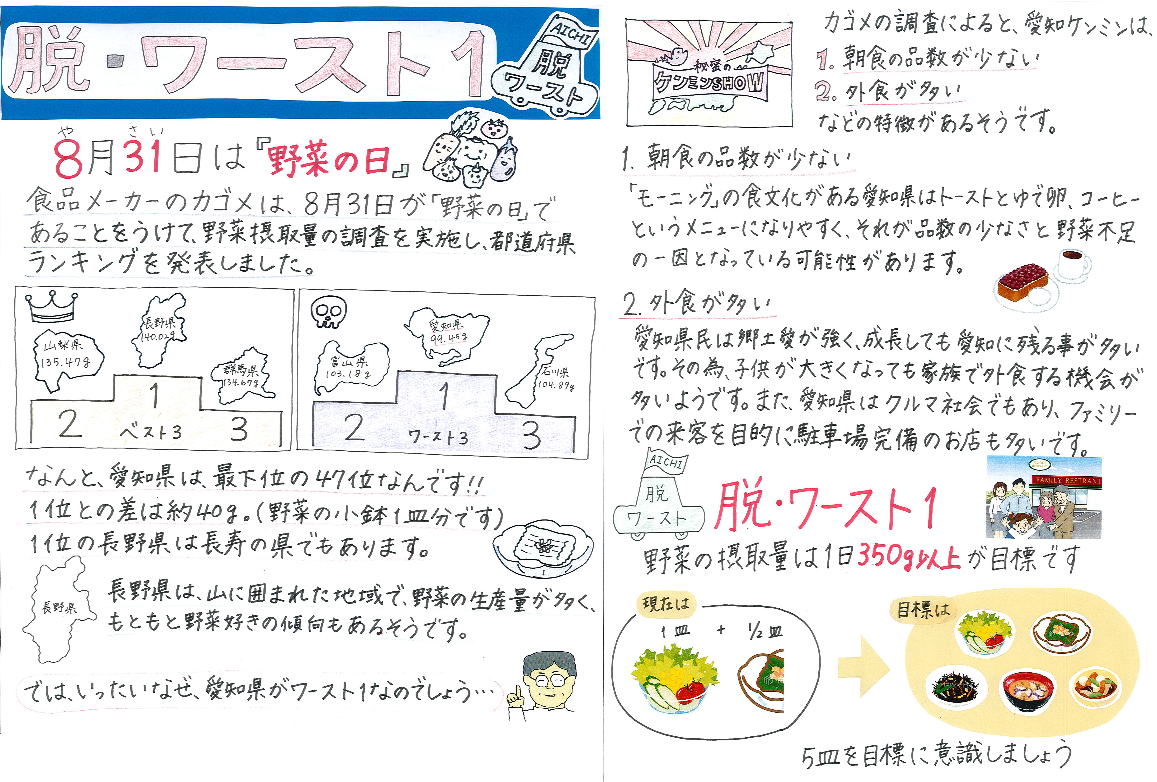 脱・ワースト1
AICHI
脱
ワースト
や さい
8月31日は『野菜の日』
食品メーカーのカゴメは、8月31日が「野菜の日」で
あることをうけて、野菜摂取量の調査を実施し、都道府県
ランキングを発表しました。
長野県
140.02g
山梨県
135.47g
群馬県
134.67g
1
2
ベスト3
3
愛知県
99.45g
富山県
103.18g
石川県
104.87g
1
2
ワースト3
3
なんと、愛知県は、最下位の47位なんです!!
1位との差は約40g。(野菜の小鉢1皿分です)
1位の長野県は長寿の県でもあります。
長野県
長野県は、山に囲まれた地域で、野菜の生産量が多く、
もともと野菜好きの傾向もあるそうです。
では、いったいなぜ、愛知県がワースト1なのでしょう…
秘密の
ケンミンSHOW
カゴメの調査によると、愛知ケンミンは、
1. 朝食の品数が少ない
2. 外食が多い
などの特徴があるそうです。
1. 朝食の品数が少ない
「モーニング」の食文化がある愛知県はトーストとゆで卵、コーヒー
というメニューになりやすく、それが品数の少なさと野菜不足
の一因となっている可能性があります。
2. 外食が多い
愛知県民は郷土愛が強く、成長しても愛知に残る事が多い
です。その為、子供が大きくなっても家族で外食する機会が
多いようです。また、愛知県はクルマ社会でもあり、ファミリー
での来客を目的に駐車場完備のお店も多いです。
AICHI
脱
ワースト
脱・ワースト1
野菜の摂取量は1日350g以上が目標です
現在は
1皿 + 1/2皿
目標は
5皿を目標に意識しましょう